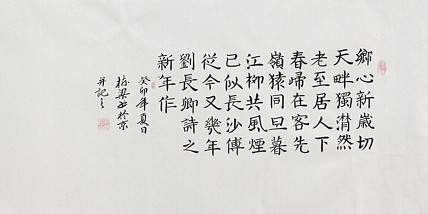 鄉心新歲切
天畔獨潸然
老至居人下
春帰在客先
嶺猿同旦暮
江柳共風煙
已似長沙傅
從今又幾年
劉長卿詩之
新年作
癸卯年夏日
栋梁书於京
并記之